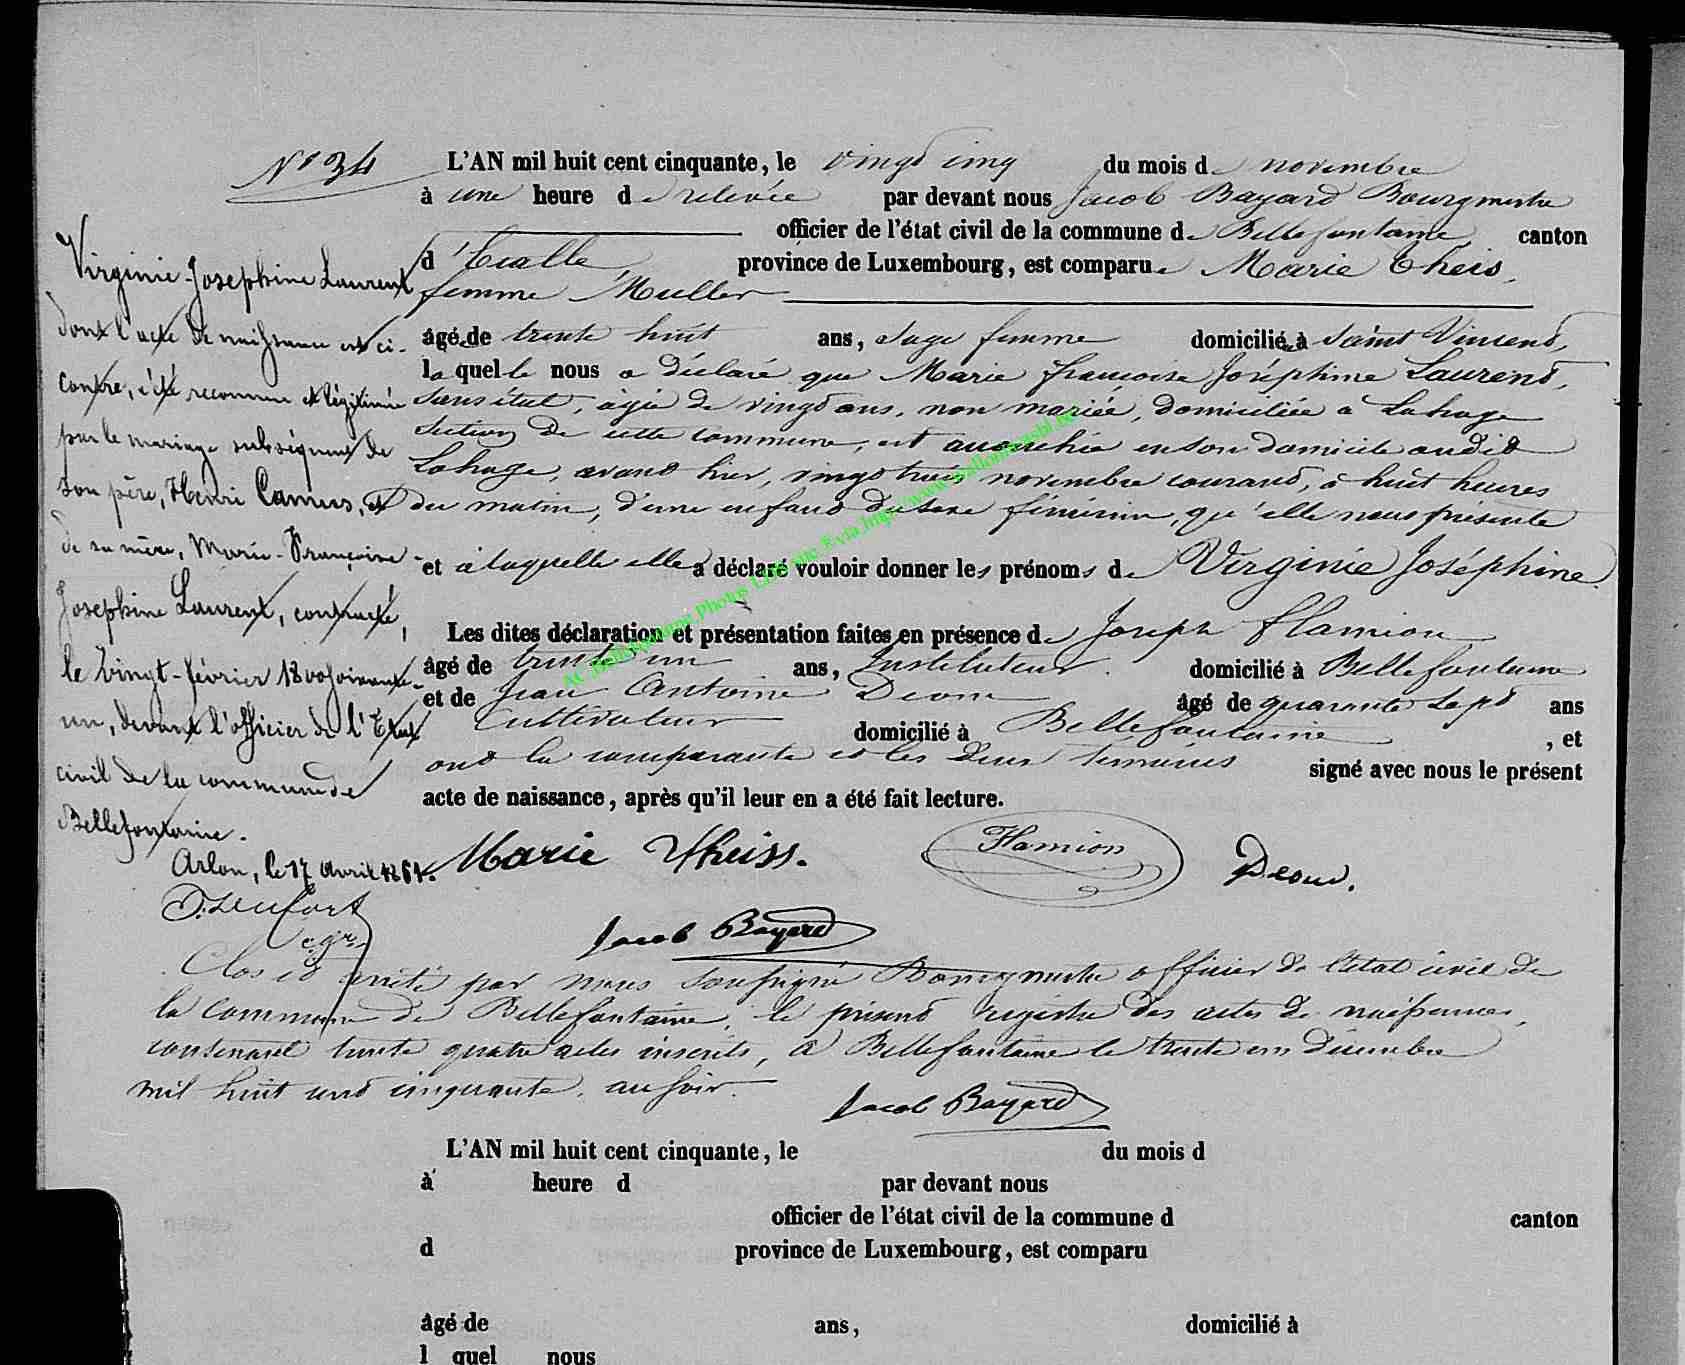 N° 34
L'AN mil huit cent cinquante, le vingt cinq du mois de novembre
à une heure de relevée par devant nous Jacob Bayard Bourgmestre
officier de l'état civil de la commune de Bellefontaine canton
d'Etalle province de Luxembourg, est comparue Marie Theis,
femme Muller
âgée de trente huit ans, sage femme domiciliée à Saint Vincent,
laquelle nous a déclaré que Marie françoise Joséphine Laurent,
sans état, âgée de vingt ans, non mariée, domiciliée à Lahage
section de cette commune, est accouchée en son domicile audit
Lahage, avant hier, vingt trois novembre courant, à huit heures
du matin, d'une enfant du sexe féminin, qu'elle nous présente
et à laquelle elle a déclaré vouloir donner les prénoms de Virginie Joséphine
Les dites déclaration et présentation faites en présence de Joseph Flamion
âgé de trente un ans, Instituteur domicilié à Bellefontaine
et de Jean Antoine Deom âgé de quarante sept ans
Cultivateur domicilié à Bellefontaine, et
ont la comparante et les deux témoins signé avec nous le présent
acte de naissance, après qu'il leur en a été fait lecture.
Marie Theiss. Flamion Deom.
Jacob Bayard
Virginie-Josephine Laurent
dont l'acte de naissance est ci-
contre, a été reconnue et légitimée
par le mariage subséquent de
son père, Henri Camus, et
de sa mère, Marie-Françoise-
Josephine Laurent, contracté,
le vingt-février 1800 soixante-
un, devant l'officier de l'Etat
civil de la commune de
Bellefontaine.
Arlon, le 17 avril 1861.
c. gr.
Clos et arrêté par nous soussigné Bourgmestre officier de l'état civil de
la commune de Bellefontaine, le présent registre des actes de naissances,
contenant trente quatre actes inscrits, à Bellefontaine le trente un décembre
mil huit cent cinquante, au soir.
Jacob Bayard
L'AN mil huit cent cinquante, le du mois d
à heure d par devant nous
officier de l'état civil de la commune d canton
d province de Luxembourg, est comparu
âgé de ans, domicilié à
l quel nous